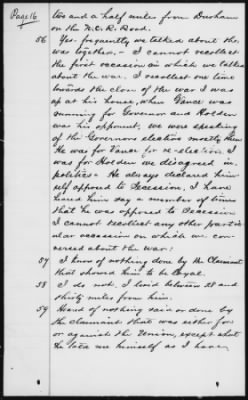 Page 16
two and a half miles from Durham
on the N.C.R. Road.
56 Yes frequently we talked about the
war together, I cannot recollect
the first occasion on which we talked
about the war. I recollect one time
towards the close of the war I was
up at his house, when Vance was
running for Governor and Holden
was his opponent, we were speaking
of the Governor election mostly then
He was for Vance for re-election I
was for Holden we disagreed in
politics. He always declared him
self opposed to Secession, I have
heard him say a number of times
that he was opposed to Secession
I cannot recollect any other partic
ular occasion on which we con
versed about the war:
57 I know of nothing done by the Claimant
that showed him to be loyal.
58 I do not. I lived between 28 and
thirty miles from him.
59 Heard of nothing said or done by
the claimant that was either for
or against the Union, except what
he told me himself as I have